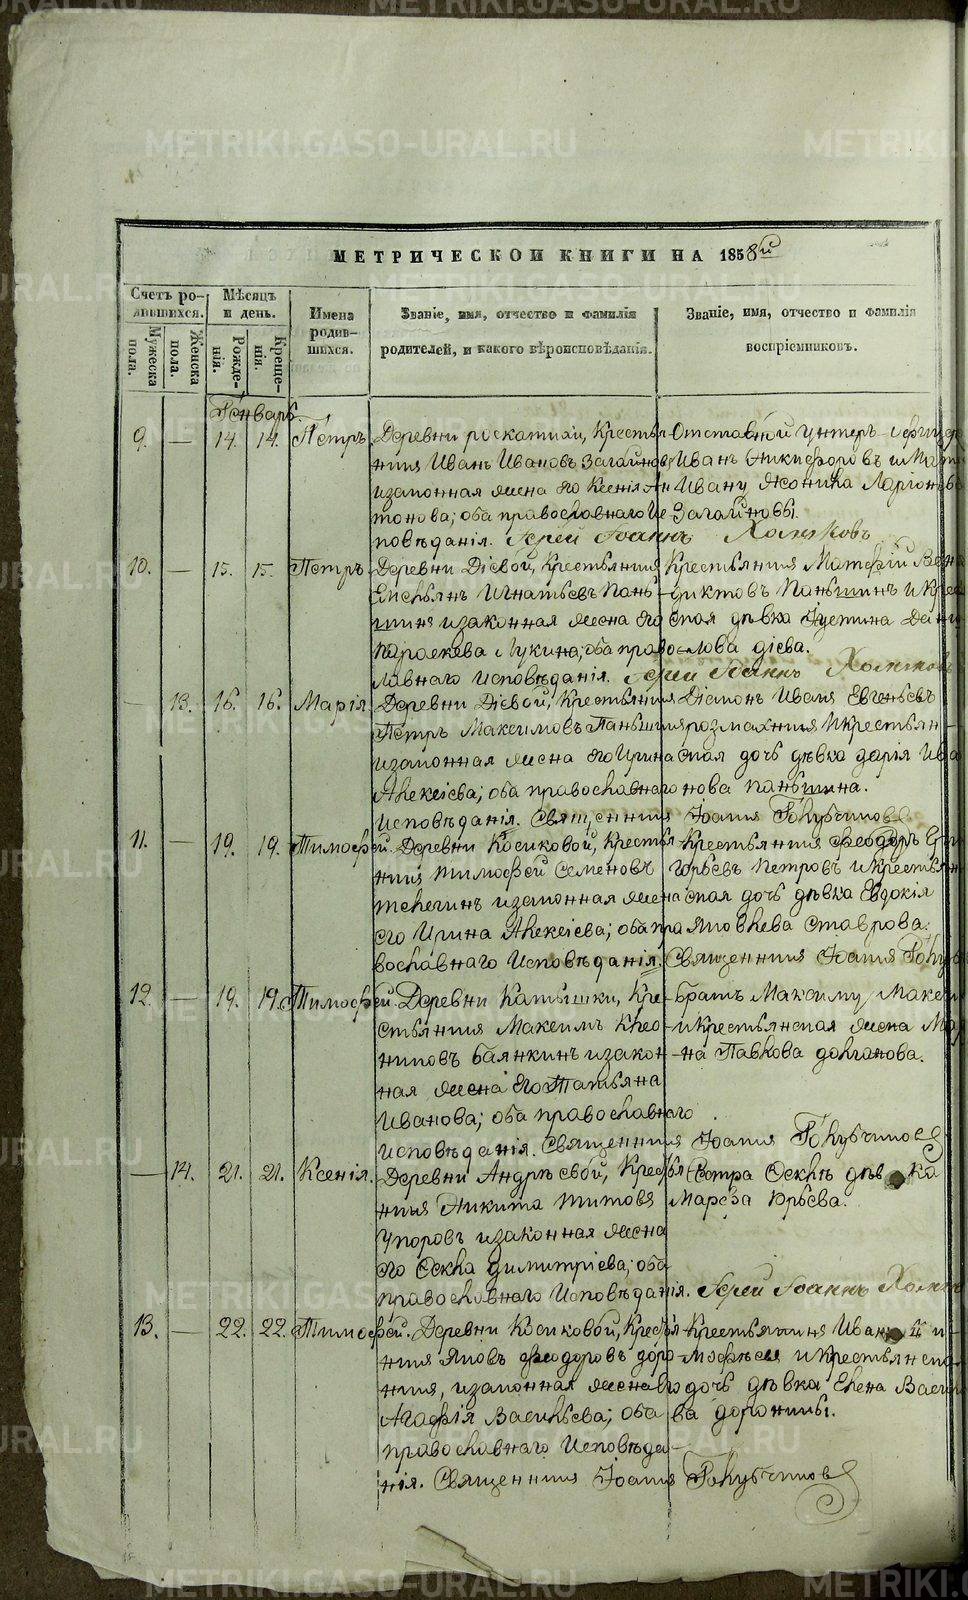 МЕТРИЧЕСКОЙ КНИГИ НА 1858й
Счетъ ро-
дившихся.
Мужеска
пола.
Женска
пола.
Мѣсяцъ
и день.
Рожде-
нія.
Креще-
нія.
Имена
родив-
шихся.
Званіе, имя, отчество и фамилія
родителей, и какого вѣроисповѣданія.
Званіе, имя, отчество и фамилія
воспріемниковъ.
Генварь.
9. — 14. 14. Петръ
Деревни Роскатихи, Крестья-
нинъ Иванъ Ивановъ Загайновъ
и законная жена его Ксенія Ан-
тонова; оба православнаго Ис-
повѣданія. Іерей Іоаннъ Холмковъ
Отставной Унтеръ-офице
Иванъ Никифоровъ и
Ивану Ларіонова
Загайновы.
10. — 15. 15. Петръ
Деревни Дiевой, Крестьянинъ
Емельянъ Игнатьевъ Пань-
шинъ и законная жена его
Параскева Лукина; оба право-
славнаго Исповѣданія. Іерей Іоаннъ Холмков
Крестьянинъ Матфiй Вене
диктовъ Паньшинъ и Крес
ская дѣвка Іустина Дани
лова Дiева.
— 13. 16. 16. Марія
Деревни Дiевой, Крестьянинъ
Петръ Максимовъ Паньшинъ
и законная жена его Ирина
Алексiева; оба православнаго
Исповѣданія. Священникъ Іоаннъ Голубчиковъ
Діаконъ Евгеньевъ
и Крестьян-
ская дочь дѣвка Дарія Ива
нова Паньшина.
11. — 19. 19. Тимофей.
Деревни Косиковой, Крестья-
нинъ Тимофей Семеновъ
Телегинъ и законная жена
его Ирина Алексiева; оба пра-
вославнаго Исповѣданія. Священникъ Іоаннъ Голуб
Крестьянинъ Феодоръ Гри
горьевъ Петровъ и Крестьян
ская дочь дѣвка Евдокія
Яковлева Ставрова.
12. — 19. 19. Тимофей.
Деревни Катышки, Кре-
стьянинъ Максимъ Клео-
никовъ Баянкинъ и закон-
ная жена его Татьяна
Иванова; оба православнаго
Исповѣданія. Священникъ Іоаннъ Голубчиковъ
Братъ Максиму, Макси
и Крестьянская жена Ма
на Павлова Долганова.
— 14. 21. 21. Ксенія.
Деревни Андрѣевой, Крестья-
нинъ Никита Титовъ
Упоровъ и законная жена
его Оекла Димитріева; оба
православнаго Исповѣданія. Іерей Іоаннъ Холмк
Сестра Оеклѣ дѣвка
Марѳа Юрьева.
13. — 22. 22. Тимофей.
Деревни Косиковой, Крестья-
нинъ Яковъ Феодоровъ Доро-
нинъ, и законная жена его
Агафія Васильева; оба
православнаго Исповѣда-
нія. Священникъ Іоаннъ Голубчиковъ
Крестьянинъ Иванъ
и Крестьянска
дочь дѣвка Елена Васил
ва Доронины.
METRIKI.GASO-URAL.RU